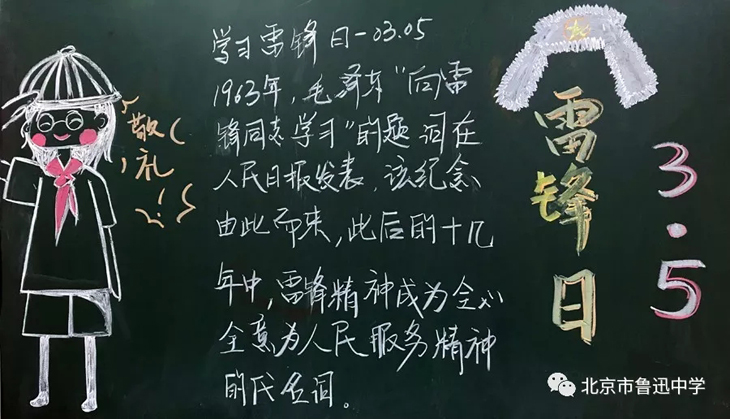 学习雷锋日-03.05
1963年，毛泽东“向雷
锋同志学习”的题词在
人民日报发表，该纪念
由此而来，此后的十几
年中，雷锋精神成为全心
全意为人民服务精神
的代名词。
敬礼!
雷锋日
3.5
北京市鲁迅中学